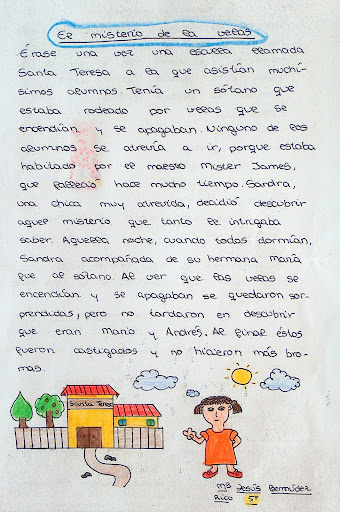 El misterio de la velas
Érase una vez una escuela llamada
Santa Teresa a la que asistían muchí-
simos alumnos. Tenía un sótano que
estaba rodeado por velas que se
encendían y se apagaban. Ninguno de los
alumnos se atrevía a ir, porque estaba
habitado por el maestro Mister James,
que falleció hace mucho tiempo. Sandra,
una chica muy atrevida, decidió descubrir
aquel misterio que tanto le intrigaba
saber. Aquella noche, cuando todos dormían,
Sandra acompañada de su hermana María
fue al sótano. Al ver que las velas se
encendían y se apagaban se quedaron sor-
prendidas, pero no tardaron en descubrir
que eran Mario y Andrés. Al final éstos
fueron castigados y no hicieron más bro-
mas.
Santa Teresa
Mª Jesús Bermúdez
Rico 5º